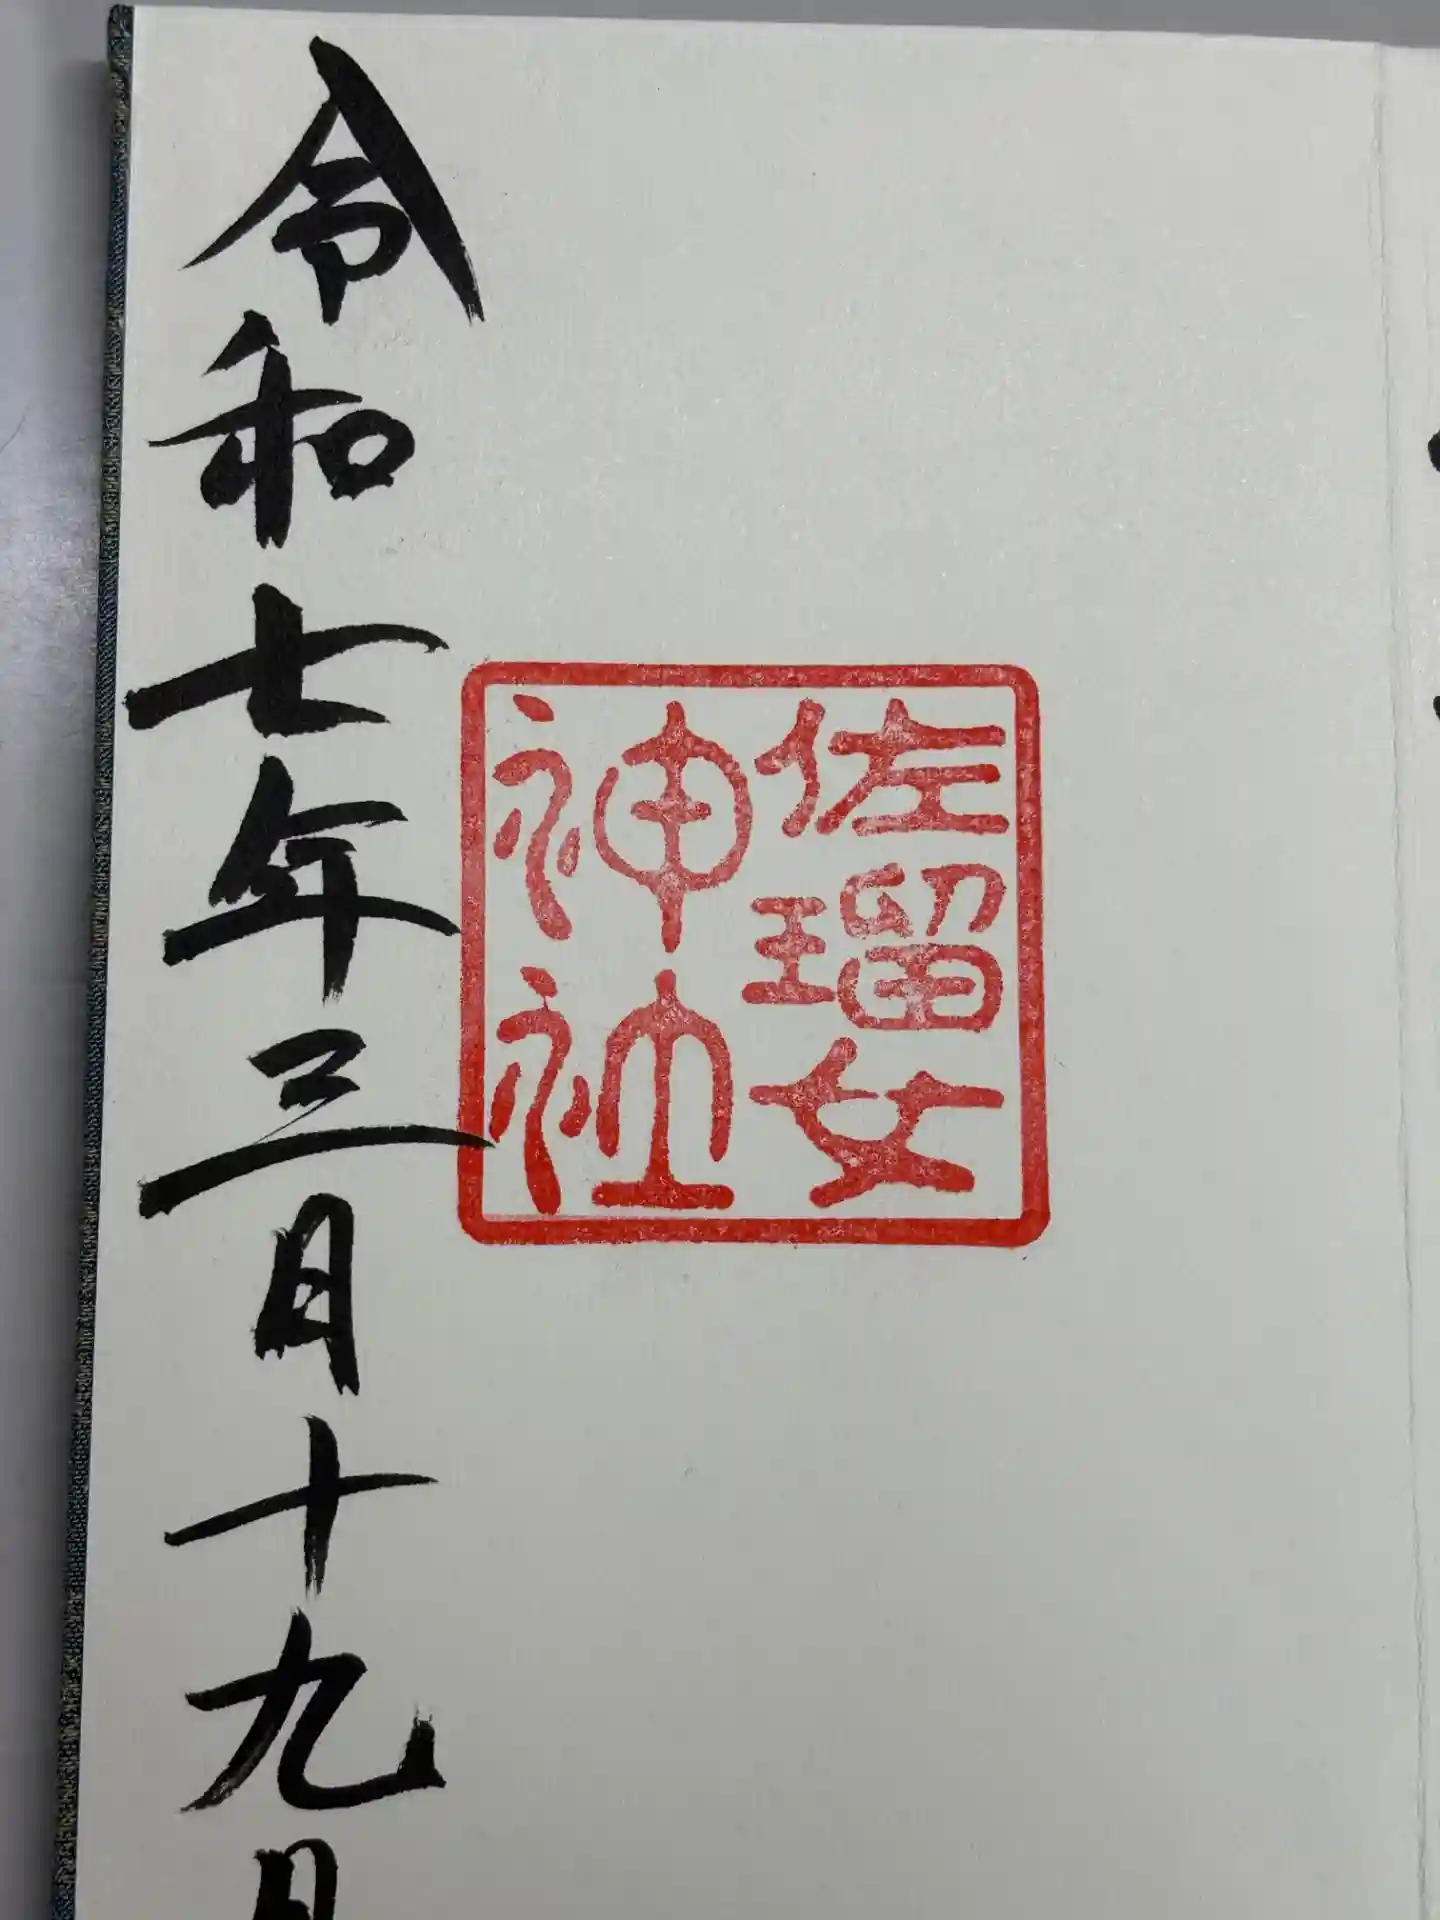 佐瑠女
神社
令和七年三月十九日